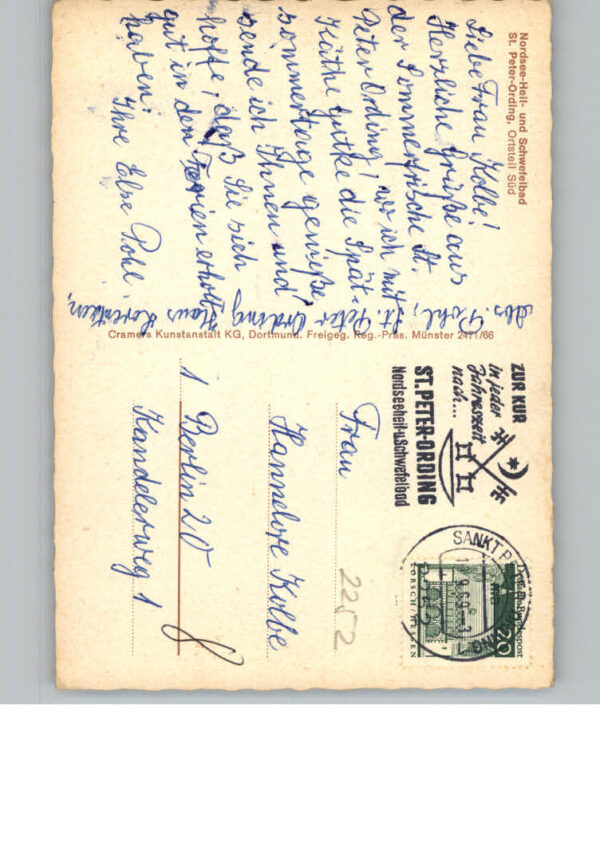 Nordsee-Heil- und Schwefelbad
St. Peter-Ording, Ortsteil Süd
Liebe Frau Kolbe!
Herzliche Grüße aus
der Sommerfrische St.
Peter Ording, wo ich mit
Käthe Gutke die Spät-
sommertage genieße,
sende ich Ihnen und
hoffe, daß Sie sich
gut in den Ferien erholt
haben.
Ihre Else Pohl.
Abs. Pohl, St. Peter Ording, Haus Lorentzen,
Cramers Kunstanstalt KG, Dortmund. Freigeg. Reg.-Präs. Münster 2471/66
ZUR KUR
in jeder
Jahreszeit
nach...
ST. PETER-ORDING
Nordseeheil-u.Schwefelbad
SANKT PETER-ORDING
2252
Deutsche Bundespost
20
LORSCH/HESSEN
Frau
Hannelore Kolbe
1 Berlin 20
Kandelerweg 1
2252